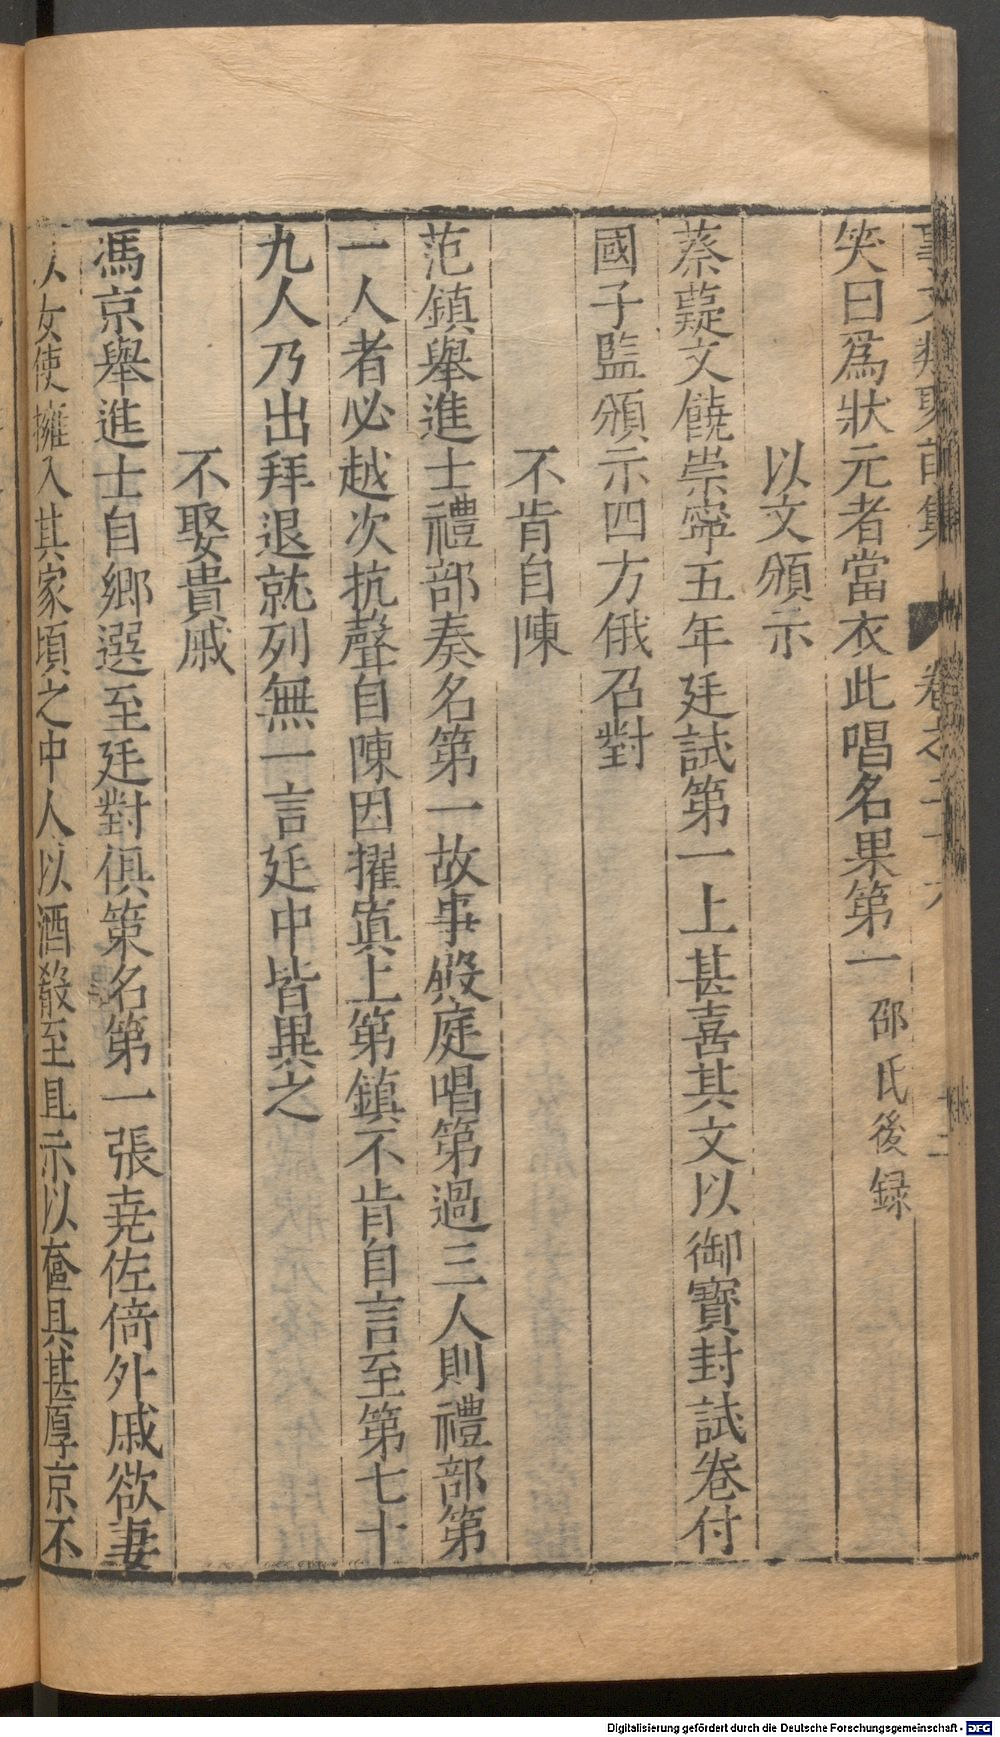 事文類聚前集 卷之二十六
笑曰爲狀元者當衣此唱名果第一 邵氏後録
以文頒示
蔡薿文饒崇寧五年廷試第一上甚喜其文以御寳封試卷付
國子監頒示四方俄召對
不肯自陳
范鎮舉進士禮部奏名第一故事殿庭唱第過三人則禮部第
一人者必越次抗聲自陳因擢寘上第鎮不肯自言至第七十
九人乃出拜退就列無一言廷中皆異之
不娶貴戚
馮京舉進士自鄉選至廷對俱策名第一張尭佐倚外戚欲妻
以女使擁入其家頃之中人以酒殽至且示以奩具甚厚京不
Digitalisierung gefördert durch die Deutsche Forschungsgemeinschaft - DFG